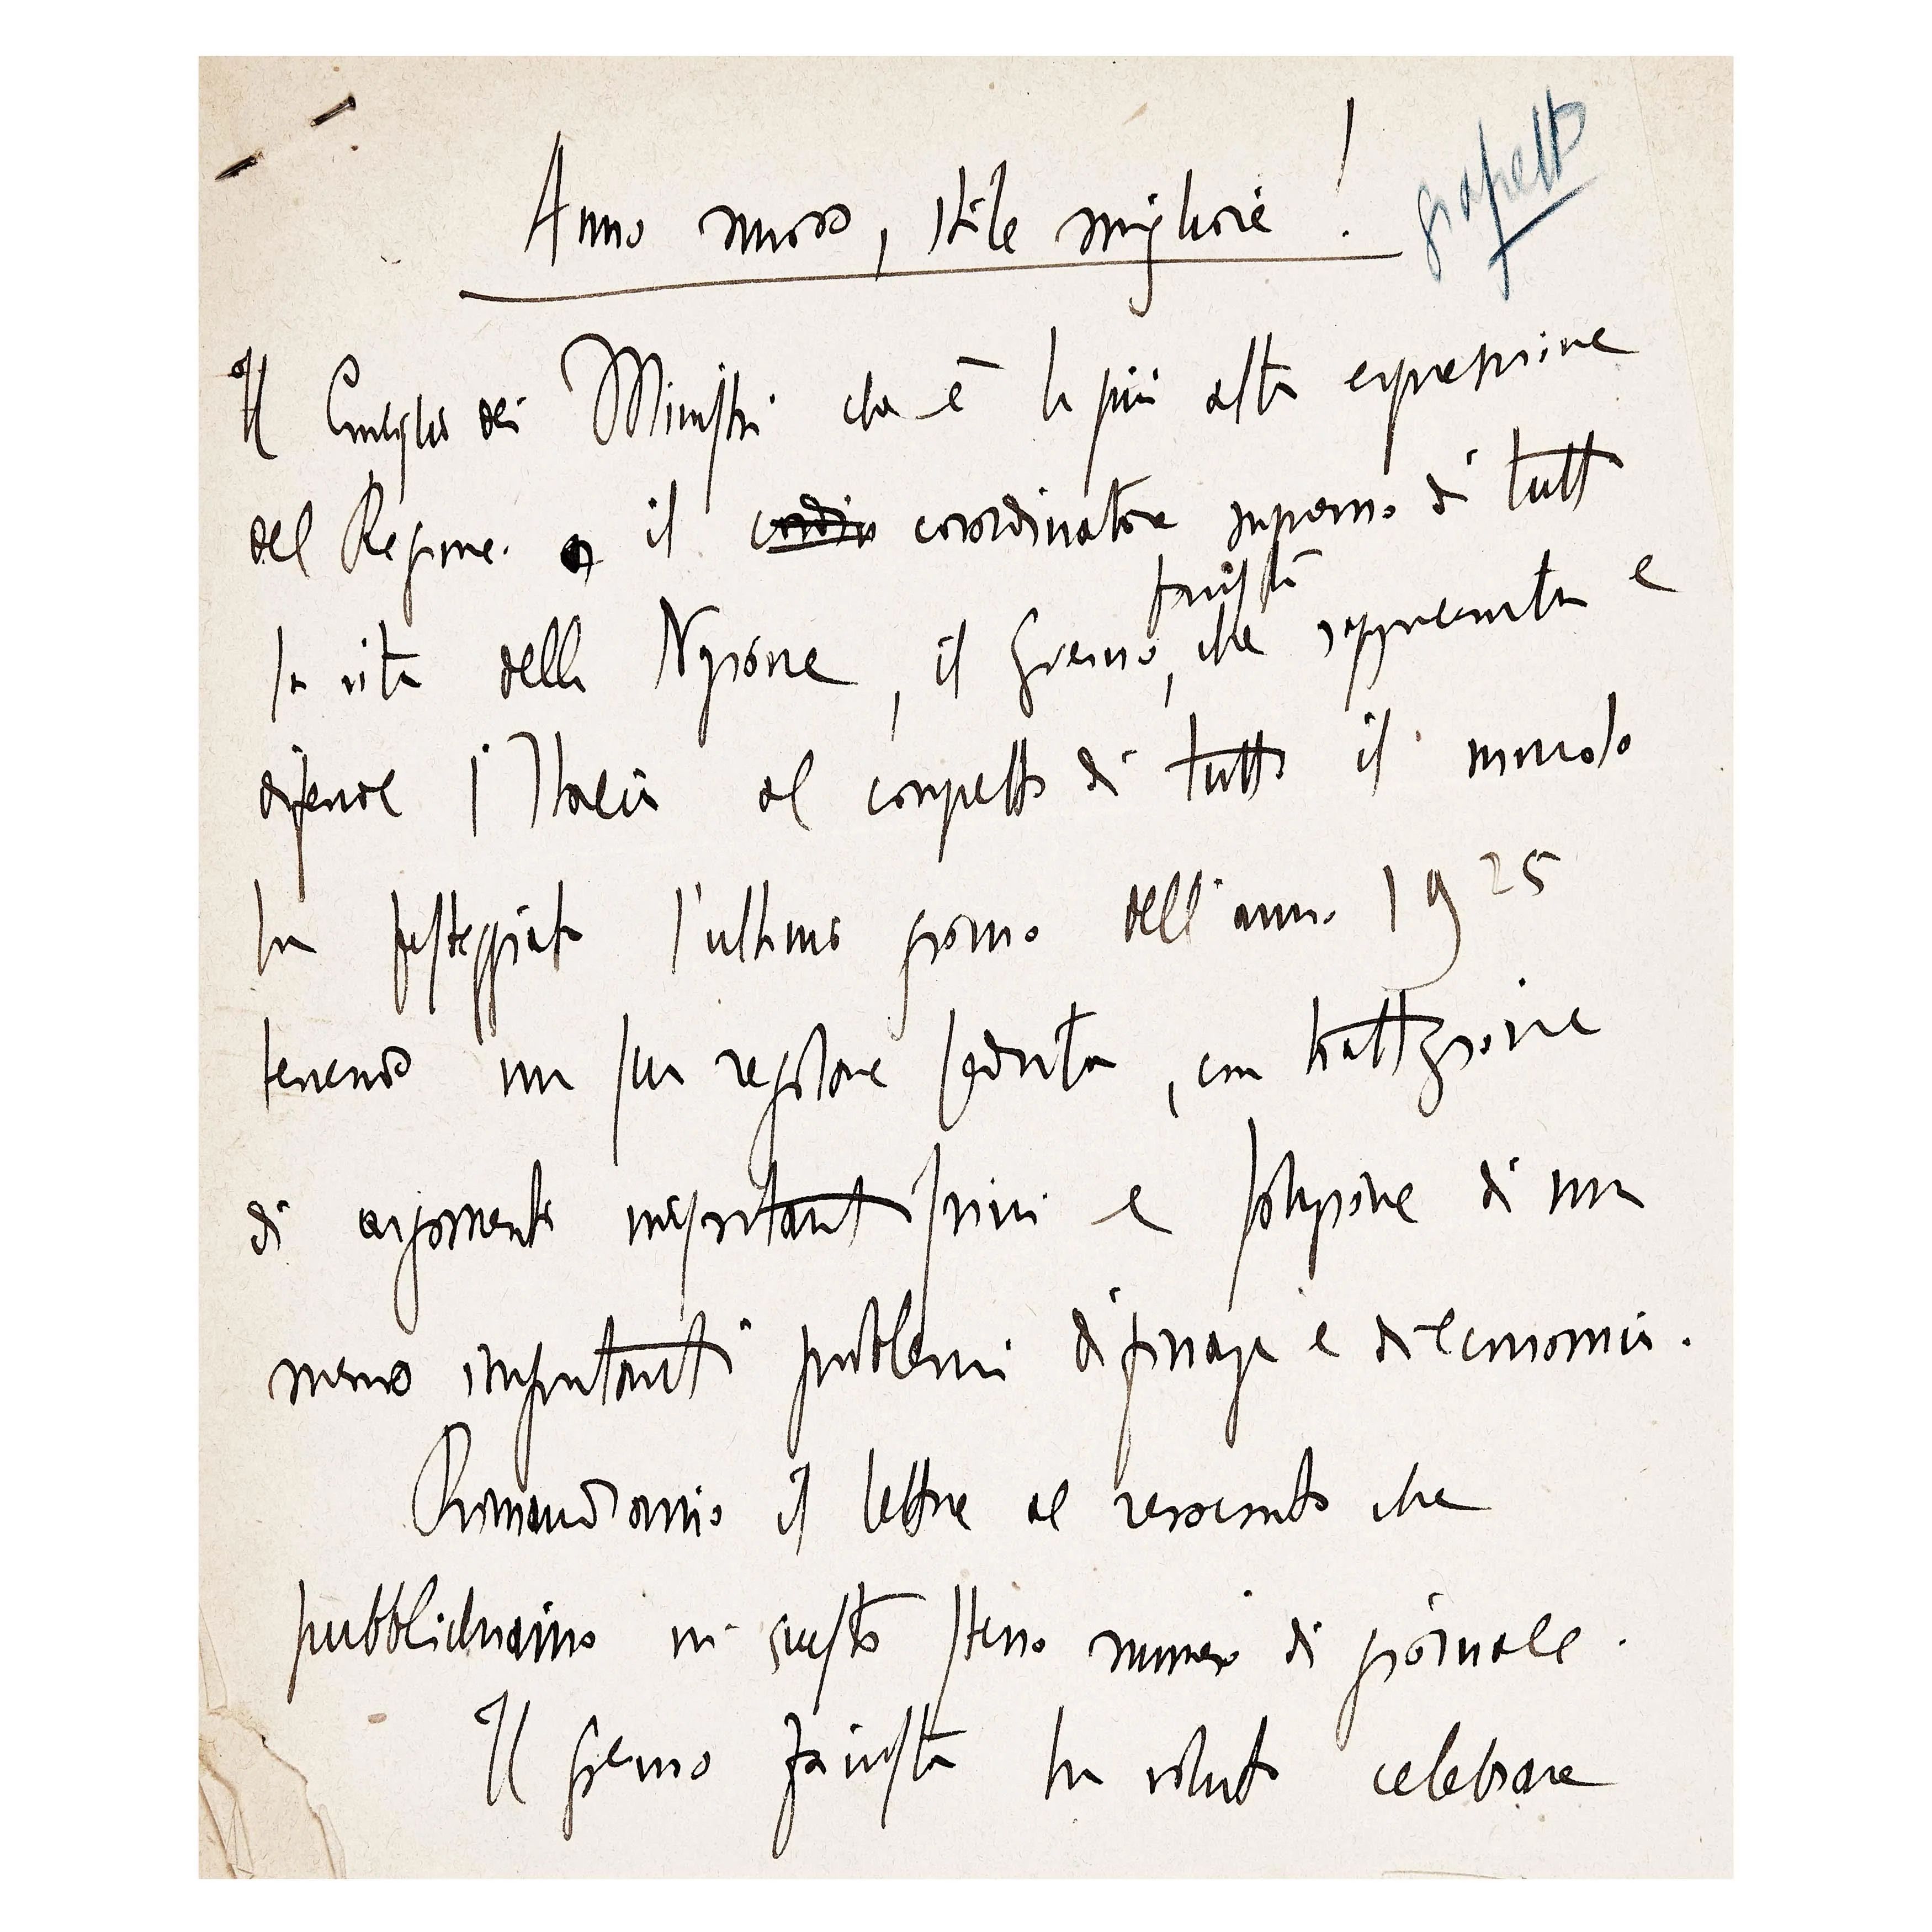 Anno nuovo, stile migliore!
grassetto
Il Consiglio dei Ministri che è la più alta espressione
del Regime. il coordinatore supremo di tutta
fascista
la vita della Nazione, il Governo, che rappresenta e
difende l'Italia al cospetto di tutto il mondo
ha festeggiato l'ultimo giorno dell'anno 1925
tenendo una sua regolare seduta, con trattazione
di argomenti importantissimi e soluzione di non
meno importanti problemi di finanza e di economia.
Rimandiamo il lettore al resoconto che
pubblichiamo in questo stesso numero di giornale.
Il governo fascista ha voluto celebrare